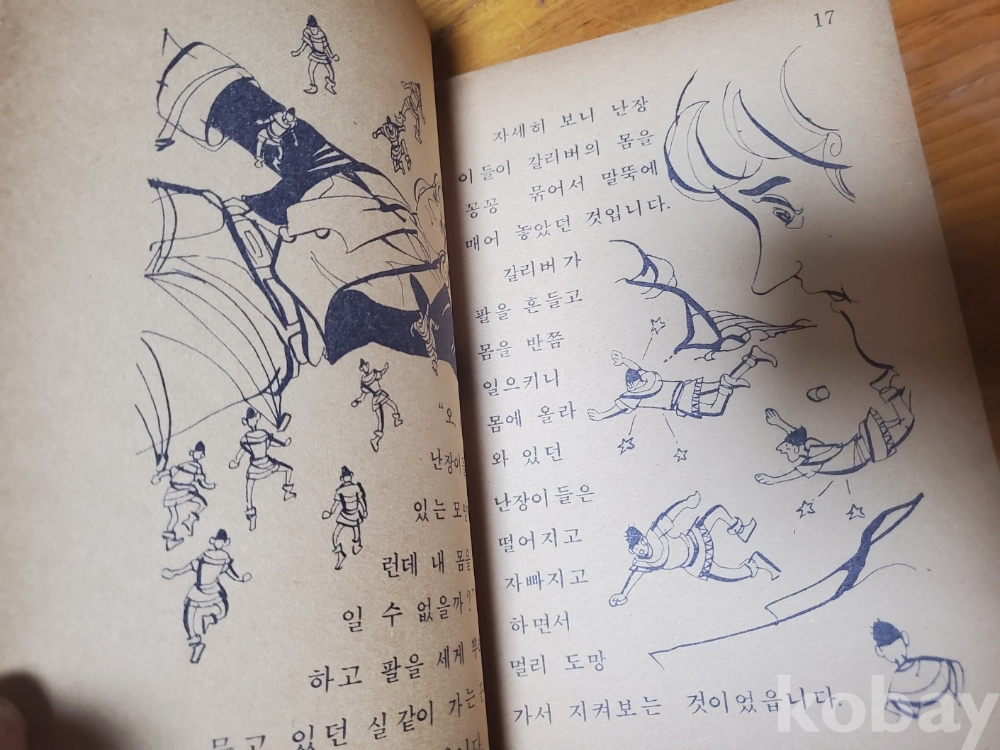 "오
난장이
있는
런데 내 몸을
일 수 없을까?"
하고 팔을 세게
묶고 있던 실같이 가는
17
자세히 보니 난장
이들이 갈리버의 몸을
꽁꽁 묶어서 말뚝에
매어 놓았던 것입니다.
갈리버가
팔을 흔들고
몸을 반쯤
일으키니
몸에 올라
와 있던
난장이들은
떨어지고
자빠지고
하면서
멀리 도망
가서 지켜보는 것이었읍니다.
kobay